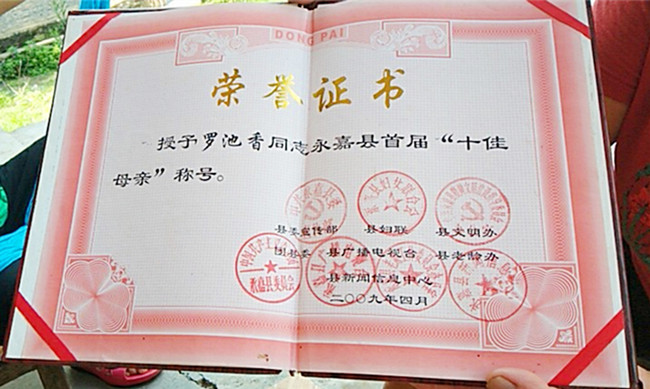 DONG PAI
荣誉证书
授予罗池香同志永嘉县首届“十佳
母亲”称号。
县委宣传部 县妇联 县文明办
团县委 县广播电视台 县老龄办
县新闻信息中心
二〇〇九年四月